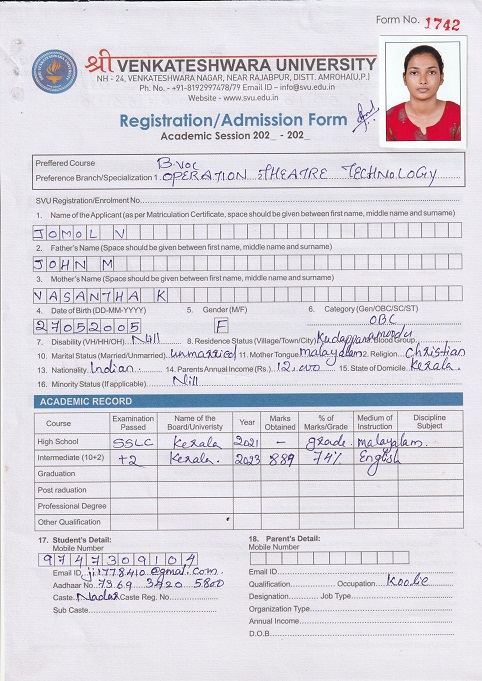 Form No. 1742
श्री VENKATESHWARA UNIVERSITY
NH - 24, VENKATESHWARA NAGAR, NEAR RAJABPUR, DISTT. AMROHA(U.P.)
Ph. No. - +91-8192997478/79 Email ID – info@svu.edu.in
Website - www.svu.edu.in
Registration/Admission Form
Academic Session 202_ - 202_
Preffered Course B.Voc
Preference Branch/Specialization 1. OPERATION THEATRE TECHNOLOGY
SVU Registration/Enrolment No.
1. Name of the Applicant (as per Matriculation Certificate, space should be given between first name, middle name and surname)
JOMOL V
2. Father's Name (Space should be given between first name, middle name and surname)
JOHN M
3. Mother's Name (Space should be given between first name, middle name and surname)
VASANTHA K
4. Date of Birth (DD-MM-YYYY) 5. Gender (M/F) 6. Category (Gen/OBC/SC/ST)
27052005 F OBC
7. Disability (VH/HH/OH). Nill 8. Residence Status (Village/Town/City) Blood Group
10. Marital Status (Married/Unmarried). unmarried 11. Mother Tongue malayalam 2. Religion christian
13. Nationality. Indian 14. Parents Annual Income (Rs.) 12,000 15. State of Domicile. Kerala.
16. Minority Status (If applicable) Nill
ACADEMIC RECORD
Course Examination Passed Name of the Board/Univeristy Year Marks Obtained % of Marks/Grade Medium of Instruction Discipline Subject
High School SSLC Kerala 2021 – grade. malayalam.
Intermediate (10+2) +2 Kerala. 2023 889 74% English
Graduation
Post raduation
Professional Degree
Other Qualification
17. Student's Detail: 18. Parent's Detail:
Mobile Number Mobile Number
9747309104
Email ID Email ID
Aadhaar No. 7369 3420 5800 Qualification Occupation. Koolie
Caste. Nadar Caste Reg. No. Designation Job Type
Sub Caste Organization Type
Annual Income
D.O.B.